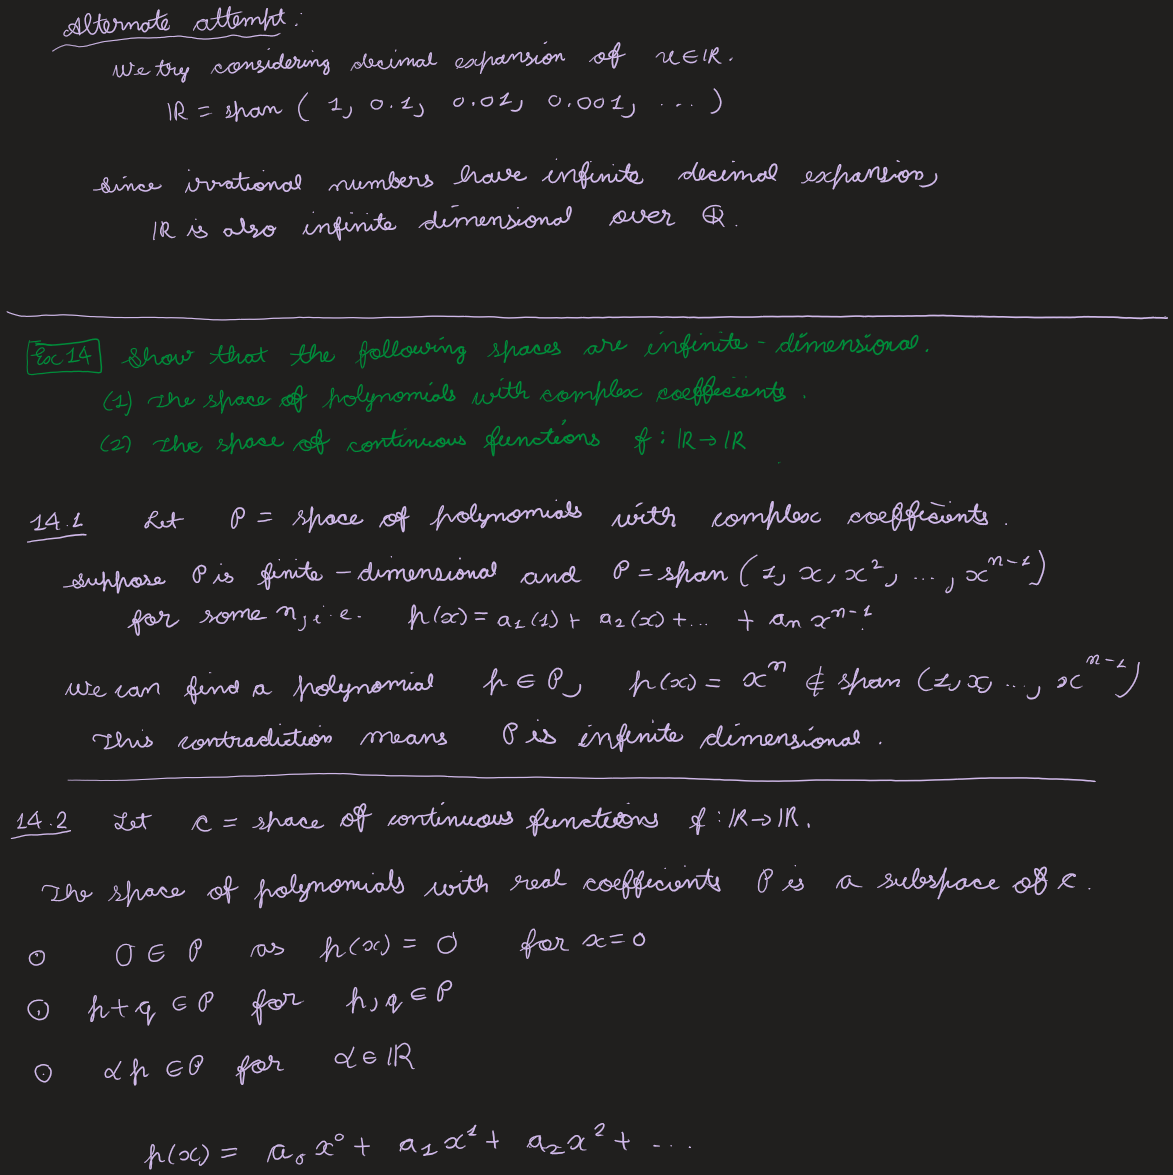 Alternate attempt:
We try considering decimal expansion of x ∈ ℝ.
ℝ = span (1, 0.1, 0.01, 0.001, ...)
Since irrational numbers have infinite decimal expansion,
ℝ is also infinite dimensional over ℚ.
Ex 14 Show that the following spaces are infinite-dimensional.
(1) The space of polynomials with complex coefficients.
(2) The space of continuous functions f: ℝ → ℝ
14.1 Let P = space of polynomials with complex coefficients.
Suppose P is finite-dimensional and P = span (1, x, x², ..., xⁿ⁻¹)
for some n, i.e. p(x) = a₁(1) + a₂(x) + ... + aₙ xⁿ⁻¹
We can find a polynomial p ∈ P, p(x) = xⁿ ∉ span (1, x, ..., xⁿ⁻¹)
This contradiction means P is infinite dimensional.
14.2 Let C = space of continuous functions f: ℝ → ℝ.
The space of polynomials with real coefficients P is a subspace of C.
○ 0 ∈ P as p(x) = 0 for x = 0
○ p + q ∈ P for p, q ∈ P
○ αp ∈ P for α ∈ ℝ
p(x) = a₀x⁰ + a₁x¹ + a₂x² + ...